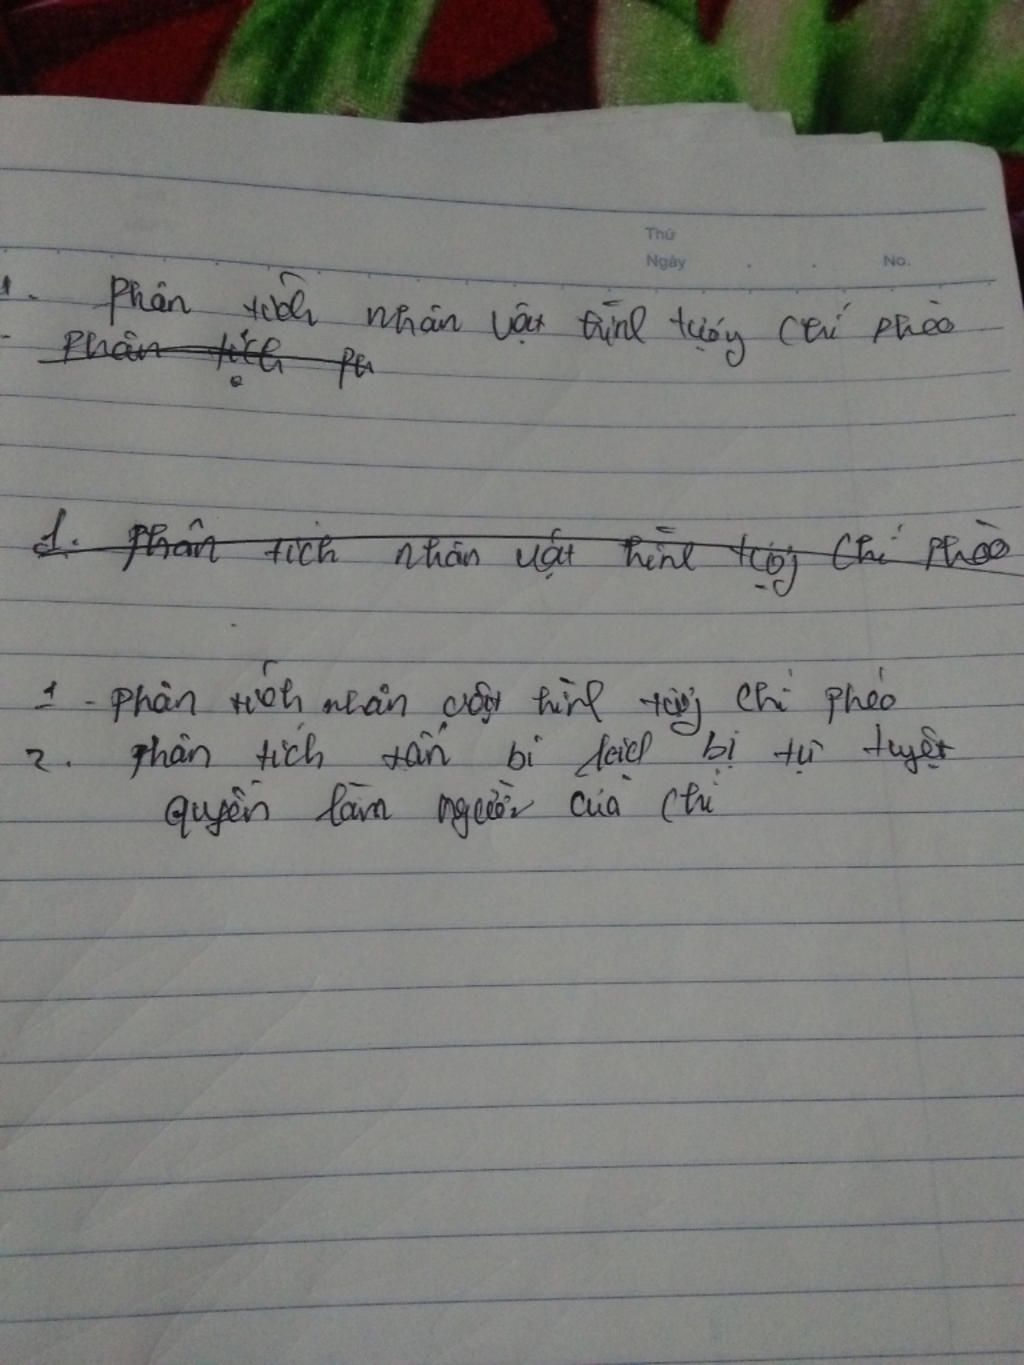 Thứ
Ngày . . No.
1. Phân tích nhân vật hình tượng Chí phèo
- Phân tích Ph
1. Phân tích nhân vật hình tượng Chí phèo
1 - Phân tích nhân vật hình tượng Chí phèo
2. Phân tích tấn bi kịch bị tự tuyệt
quyền làm người của Chí